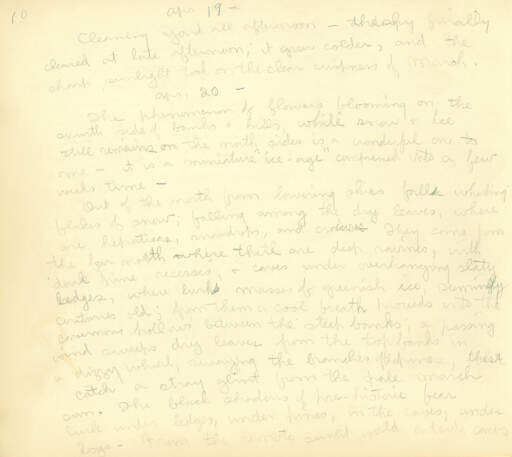 10
Apr. 19 -
Cleaning yard all afternoon - the sky finally
cleared at late afternoon; it grew colder, and the
short sunlight took on the clear crispness of March.
Apr. 20 -
The phenomenon of flowers blooming on the
south side of banks & hills, while snow & ice
still remains on the north sides is a wonderful one to
me - it is a miniature "ice-age" compressed into a few
weeks time -
Out of the north from lowering skies falls whirling
flakes of snow; falling among the dry leaves, where
are hepaticas, snowdrops, and crocuses. They come from
the far north where there are deep ravines, with
dark pine recesses, & caves under overhanging slaty
ledges, where lurks masses of greenish ice, seemingly
centuries old; from them a cool breath proceeds into the
cavernous hollows between the steep banks; a passing
wind sweeps dry leaves from the top banks in
a dizzy whirl, swaying the branches of pines, that
catch a stray glint from the pale March
sun. The black shadows of pre-historic fear
lurk under ledges, under pines, in the caves, under
logs - From the remote sunlit world outside comes